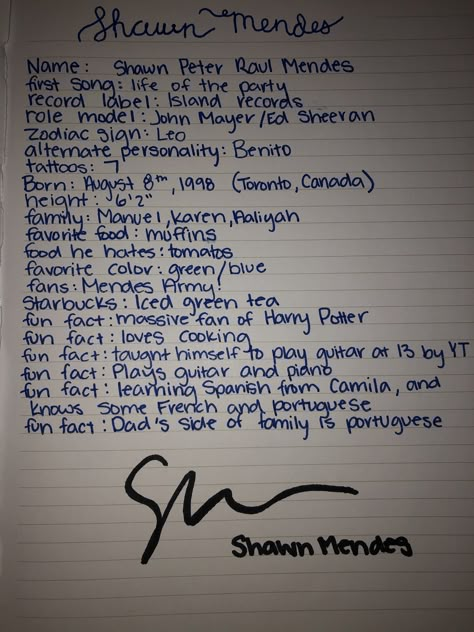 Shawn Mendes
Name: Shawn Peter Raul Mendes
first song: life of the party
record label: Island records
role model: John Mayer/Ed Sheeran
Zodiac sign: Leo
alternate personality: Benito
tattoos: 7
Born: August 8th, 1998 (Toronto, Canada)
height: 6'2"
family: Manuel, Karen, Aaliyah
favorite food: muffins
food he hates: tomatos
favorite color: green/blue
fans: Mendes Army!
Starbucks: Iced green tea
fun fact: massive fan of Harry Potter
fun fact: loves cooking
fun fact: taught himself to play guitar at 13 by YT
fun fact: Plays guitar and piano
fun fact: learning Spanish from Camila, and
knows some French and portuguese
fun fact: Dad's side of family is portuguese
Shawn Mendes